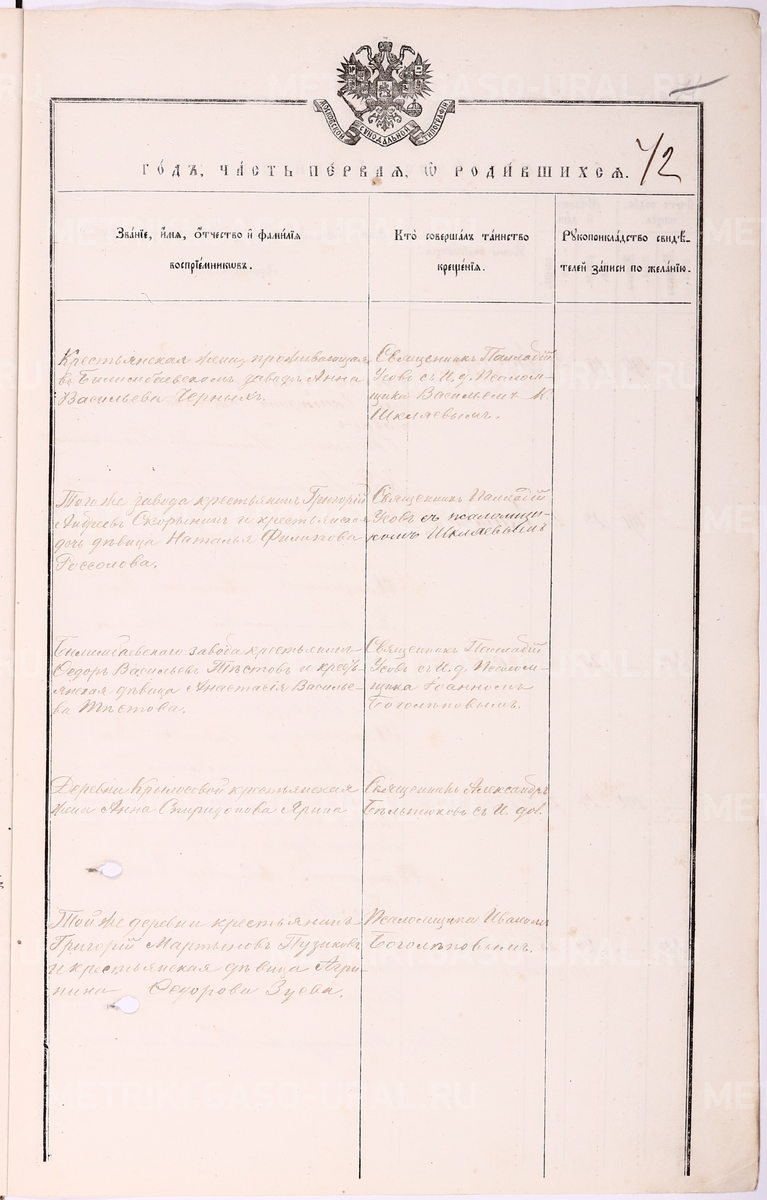 МОСКОВСКОЙ СѴНОДАЛЬНОЙ ТИПОГРАФІИ
ГО́ДЪ, ЧА́СТЬ ПЕ́РВАѦ, Ѡ҆ РОДИ́ВШИХСѦ.
42
Зва́нїе, и҆́мѧ, ѻ҆́тчество и҆ фами́лїѧ
воспрїе́мникѡвъ.
Кто̀ соверша́лъ та́инство
креще́нїѧ.
Рꙋкоприкла́дство свидѣ́-
телей за́писи по жела́нїю.
Крестьянская жена, проживающая
въ Билимбаевскомъ заводѣ Анна
Васильева Черныхъ.
Священникъ Палладій
Усовъ съ И. д. Псалом-
щика Васильемъ К.
Шкляевымъ.
Того же завода крестьянинъ Григорій
Андреевъ Скорынинъ и крестьянская
дочь дѣвица Наталья Филипова
Россолова.
Священникъ Палладій
Усовъ съ псаломщи-
комъ Шкляевымъ
Билимбаевскаго завода крестьянинъ
Ѳедоръ Васильевъ Тѣстовъ и кресть-
янская дѣвица Анастасія Василье-
ва Тѣстова.
Священникъ Палладій
Усовъ съ И. д. Псалом-
щика Іоанномъ
Боголѣповымъ.
Деревни Крылосовой крестьянская
жена Анна Спиридонова Ярина
Священникъ Александръ
Бѣльтюковъ съ И. дол.
Той же деревни крестьянинъ
Григорій Мартыновъ Пузиковъ
и крестьянская дѣвица Агри-
пина Ѳедорова Зуева.
Псаломщика Иваномъ
Боголѣповымъ.
METRIKI.GASO-URAL.RU